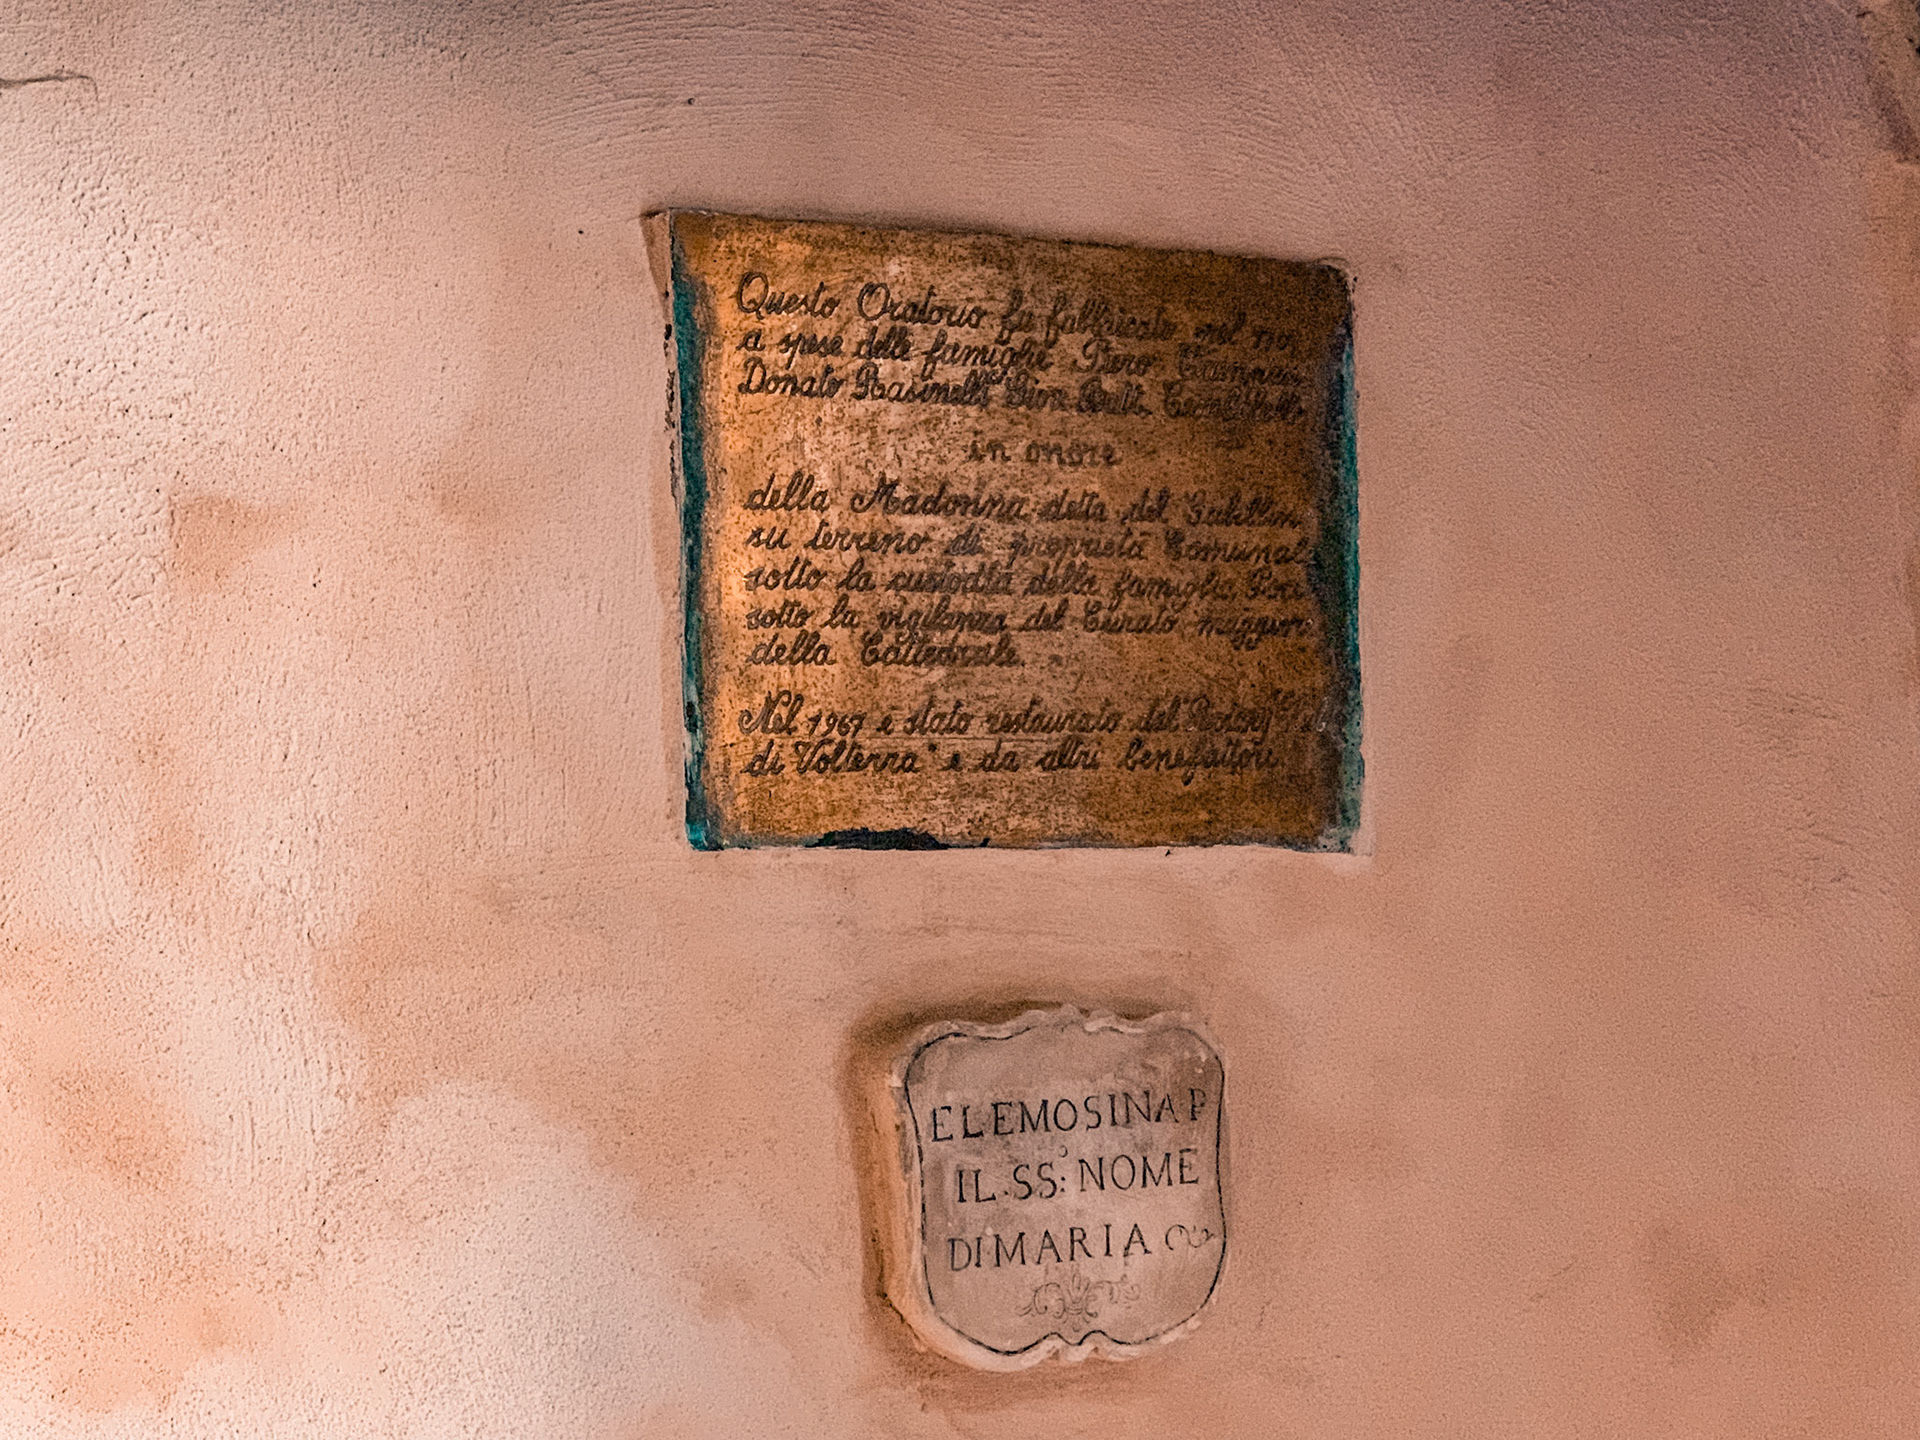 Questo Oratorio fu fabbricato nel
a spese delle famiglie Piero
Donato Rasinelli Giov. Batt.
in onore
della Madonna detta del
su terreno di proprietà Comunale
sotto la custodia della famiglia
sotto la vigilanza del Curato maggiore
della Cattedrale.
Nel 1967 è stato restaurato dal
di Volterra" e da altri benefattori
ELEMOSINA P
IL. SS: NOME
DI MARIA